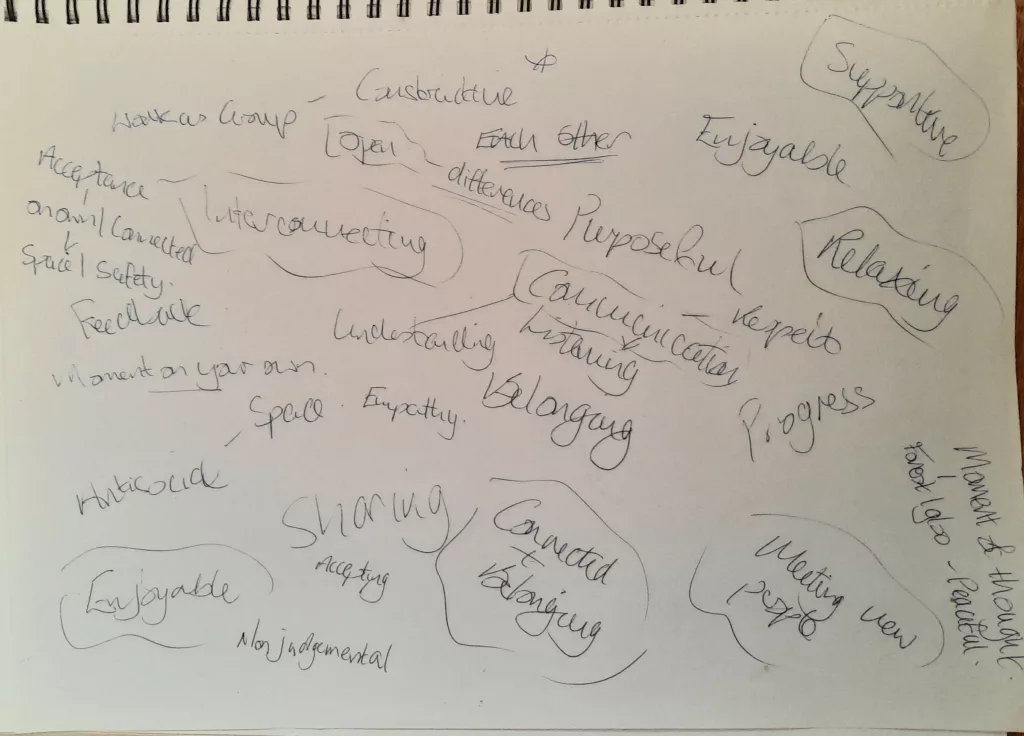 Supportive
Constructive
Work as Group -
Open
Each Other
Enjoyable
- differences
Acceptance -
Interconnecting
Purposeful
Relaxing
on own / Connected
Space / Safety.
Communication - Respect
Feedback
Understanding
Listening
Moment on your own.
Space. Empathy.
Belonging
Progress
Sharing
Accepting
Connected
+
Belonging
Meeting new
people
Enjoyable
Non judgemental
Moment of thought.
Forest Igloo - Peaceful.